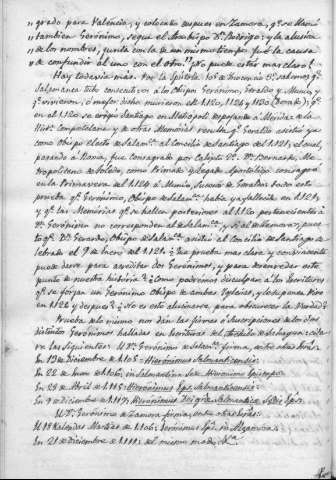 grado para Valencia, y colocado despues en Zamora, q.e se llamó
tambien Gerónimo, segun el Arzobispo D.n Rodrigo: y la alusion
de los nombres, junta con la de un mismo tiempo fué la causa
de confundir al uno con el otro. puede estar mas claro?
Hay todavia mas. Por la Epistola de Inocencio 3.o sabemos q.e
Salamanca tubo consecutivos a los Obispos Geronimo, Giraldo y Munio, y
q.e vivieron, ó mejor dicho murieron en 1120, 1124 y 1130
en el 1120 se erigio Santiago en Metropoli despojando á Mérida: de la
Hist.a Compostelana y de otras Memorias resulta q.e Giraldo asistió ya
como Obispo electo de Salam.ca al Concilio de Santiago del 1121, el cual,
pasando á Roma, fue consagrado por Calisto 2.o D.n Bernardo, Me-
tropolitano de Toledo, como Primado y Legado Apostolico consagró
en la Primavera del 1124 á Munio, Sucesor de Giraldo: todo esto
prueba q.e Gerónimo, Obispo de Salam.ca habia ya fallecido en 1121,
y q.e las Memorias q.e se hallen posteriores al 1120 pertenecientes á
D.n Gerónimo no corresponden al de Salam.ca, y si al de Zamora; pues-
to q.e D.n Gerardo, Obispo de Salam.ca asistió al Concilio de Santiago ce-
lebrado el 9 de enero del 1121. ¿Que prueba mas clara y convincente
puede darse para acreditar dos Gerónimos, y para desenredar este
punto de nuestra historia? ¿Como podremos disculpar a los Escritores
q.e se forjan un Gerónimo Obispo de ambas Iglesias, y lo suponen vivo
en 1122 y despues? ¿No es esto alucinarse para obscurecer la Verdad?
Prueba de lo mismo nos dan las firmas é Suscripciones de los dos
distintos Gerónimos halladas en Escrituras del de Sahagun: cita-
ré las siguientes: El D.n Gerónimo de Salam.ca firma, entre otras Escras.:
En 13 de diciembre de 1103: Hieronimus Salmanticensis:
En 22 de Enero de 1106: in Salmantina Sede Hieronimo Episcopo.
En 29 de Abril de 1115: Hieronimus Eps. Salmanticensis:
En 9 de diciembre de 1117: Hieronimus Dei gr.a Salmantice Sedis Eps.
El D.n Gerónimo de Zamora firma, entre otras Escras.:
El 18 Kalendas Martias de 1106: Jeronimus Eps. in Zamora:
En 21 de diciembre de 1111: del mismo modo &.a